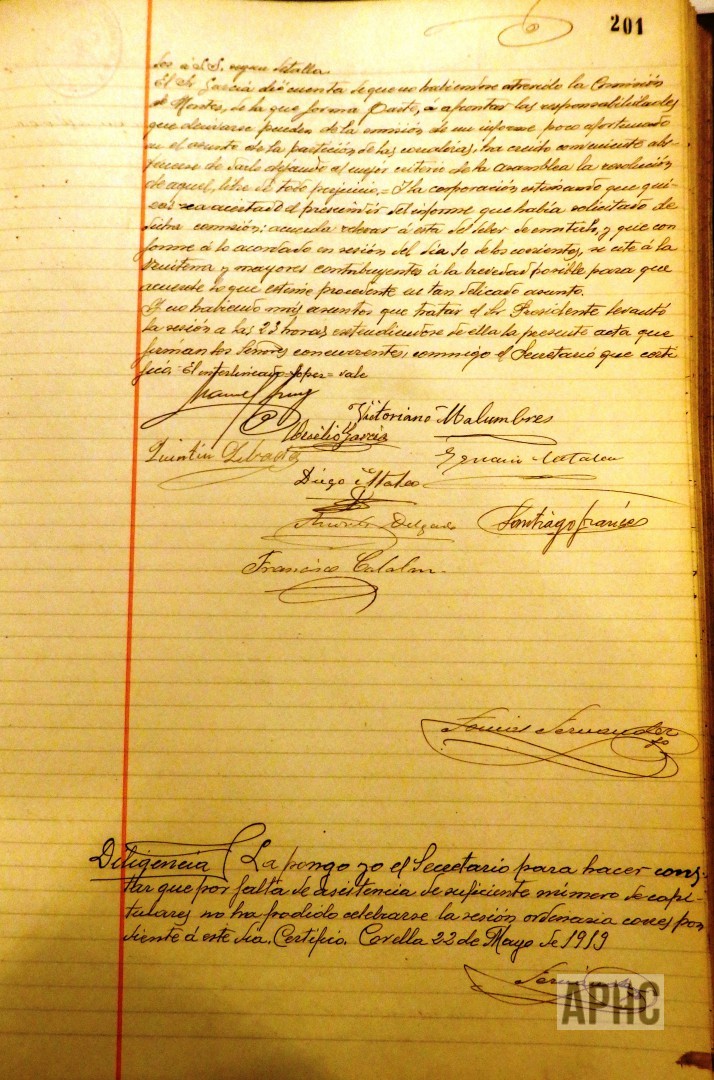 201
los á S.S. según detalla
El Sr. García dió cuenta de que no habiendose atrevido la Comisión
de Montes, de la que forma parte, á apontar las responsabilidades
que derivarse pueden de la emisión de un informe poco afortunado
en el asunto de la partición de las corralizas, ha creido conveniente abs-
tenerse de darlo dejando al mejor criterio de la asamblea la resolución
de aquel, libre de todo prejuicio. = Y la corporación estimando que qui-
zas sea acertado el prescindir del informe que había solicitado de
dicha comisión; acuerda relevar á esta del deber de emitirlo, y que con
forme á lo acordado en sesión del día 10 de los corrientes, se cite á la
Quincena y mayores contribuyentes á la brevedad posible para que
acuerde lo que estime procedente en tan delicado asunto.
Y no habiendo más asuntos que tratar el Sr. Presidente levantó
la sesión a las 23 horas extendiendose de ella la presente acta que
firman los Señores concurrentes, conmigo el Secretario que certi
fico. El interlineado = vale
Victoriano Malumbres
García
Quintin
Ignacio Catalan
Diego Mateo
Delgado
Santiago Francés
Francisco Catalan
Fernandez
Diligencia / La pongo yo el Secretario para hacer cons-
tar que por falta de asistencia de suficiente número de capi-
tulares no ha podido celebrarse la sesión ordinaria corres pon
diente á este día. Certifico. Corella 22 de Mayo de 1919
APHC